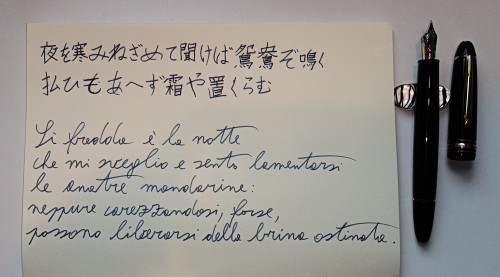 夜を寒みねざめて聞けば鴛鴦ぞ鳴く
払ひもあへず霜や置くらむ
Sì fredda è la notte
che mi sveglio e sento lamentarsi
le anatre mandarine:
neppure carezzandosi, forse,
possono liberarsi della brina ostinata.